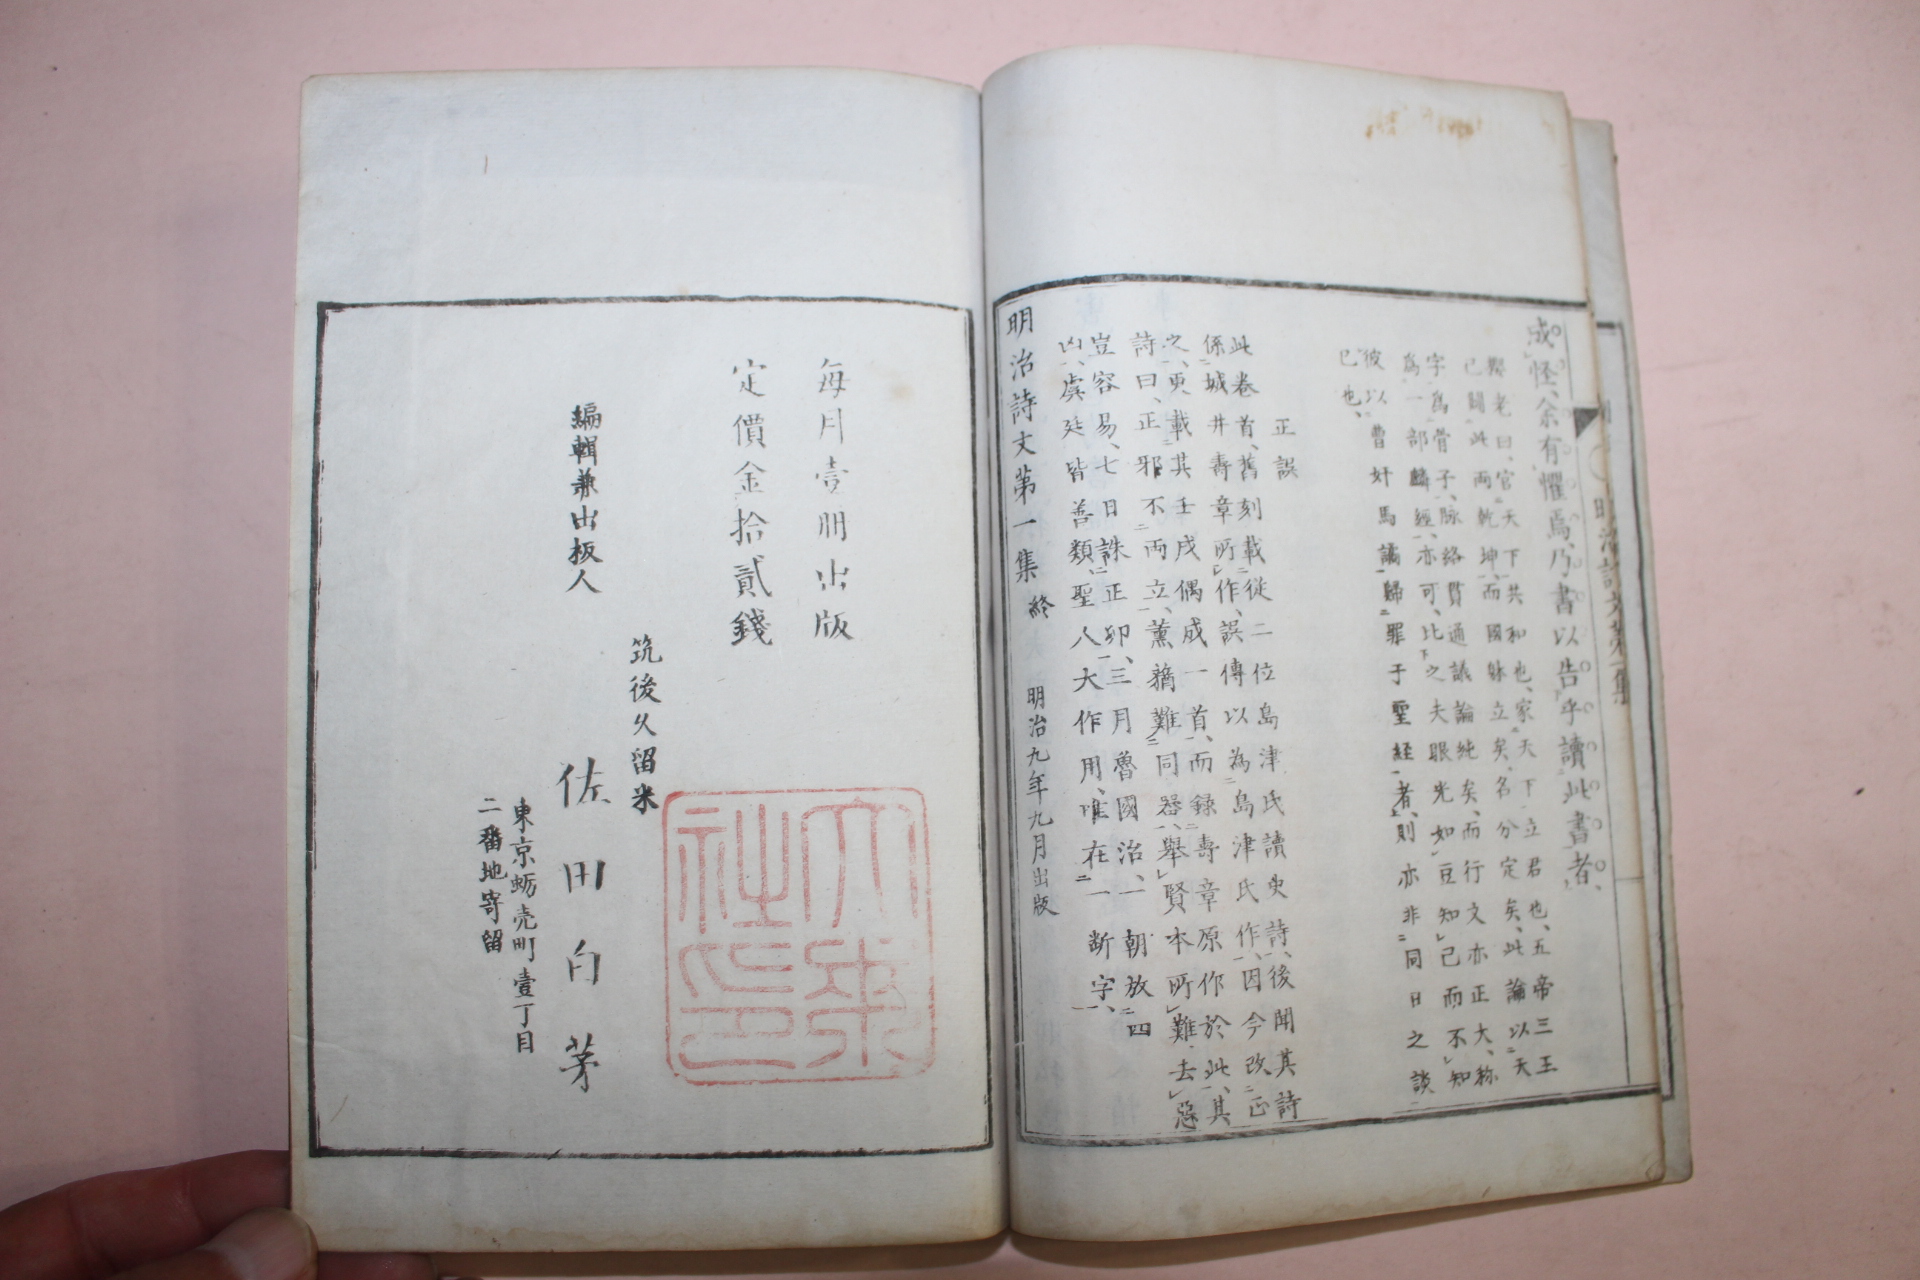 成怪、余有懼焉、乃書以告乎讀此書者、
鄰老曰、官天下共和也、家天下立君也、五帝三王
已闢此兩乾坤、而國躰立矣、名分定矣、此論以天
字爲骨子、脉絡貫通、議論純矣、而行文亦正大、称
爲一部麟經亦可、比之夫眼光如豆知己而不知
彼、以曹奸馬譎歸罪于聖經者、則亦非同日之談
已也、
正誤
此卷首、舊刻載從二位島津氏讀史詩、後聞其詩
係城井壽章所作、誤傳以為島津氏作、因今改正
之、更載其壬戌偶成一首、而録壽章原作於此、其
詩曰、正邪不兩立、薫蕕難同器、舉賢本所難、去惡
豈容易、七日誅正卯、三月魯國治、一朝放四
凶、虞廷皆善類、聖人大作用、唯在一断字、
明治詩文第一集 終 明治九年九月出版
明治詩文第一集
每月壹冊出版
定價金拾貳錢
編輯兼出板人
筑後久留米
佐田白茅
東京蛎壳町壹丁目
二番地寄留
大來
社印